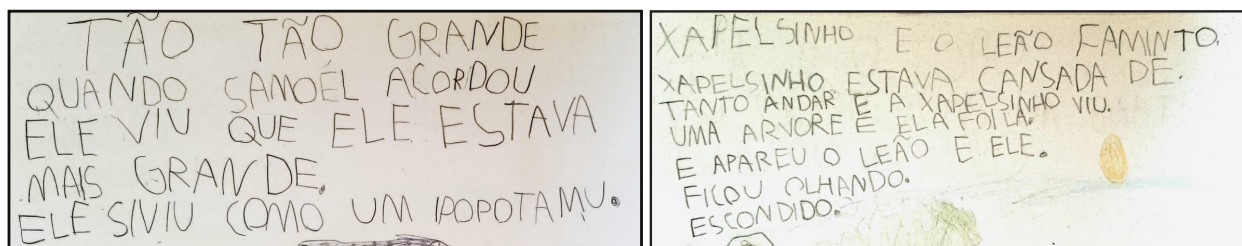 TÃO TÃO GRANDE
QUANDO SAMOÉL ACORDOU
ELE VIU QUE ELE ESTAVA
MAIS GRANDE.
ELE SIVIU COMO UM IPOPOTAMU.
XAPELSINHO E O LEÃO FAMINTO.
XAPELSINHO ESTAVA CANSADA DE.
TANTO ANDAR E A XAPELSINHO VIU.
UMA ARVORE E ELA FOI LA.
E APAREU O LEÃO E ELE.
FICOU OLHANDO.
ESCONDIDO.